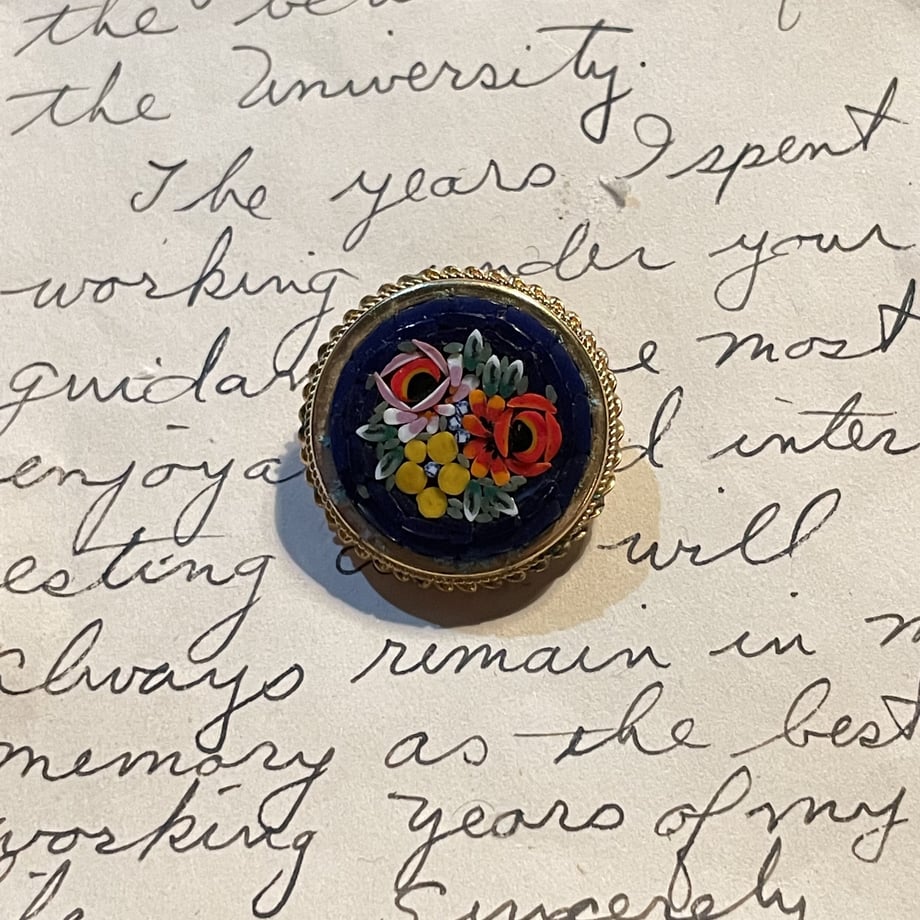 the
the University.
The years I spent
working under your
guidan e most
enjoya d inter
esting will
always remain in m
memory as the best
working years of my
Sincerely